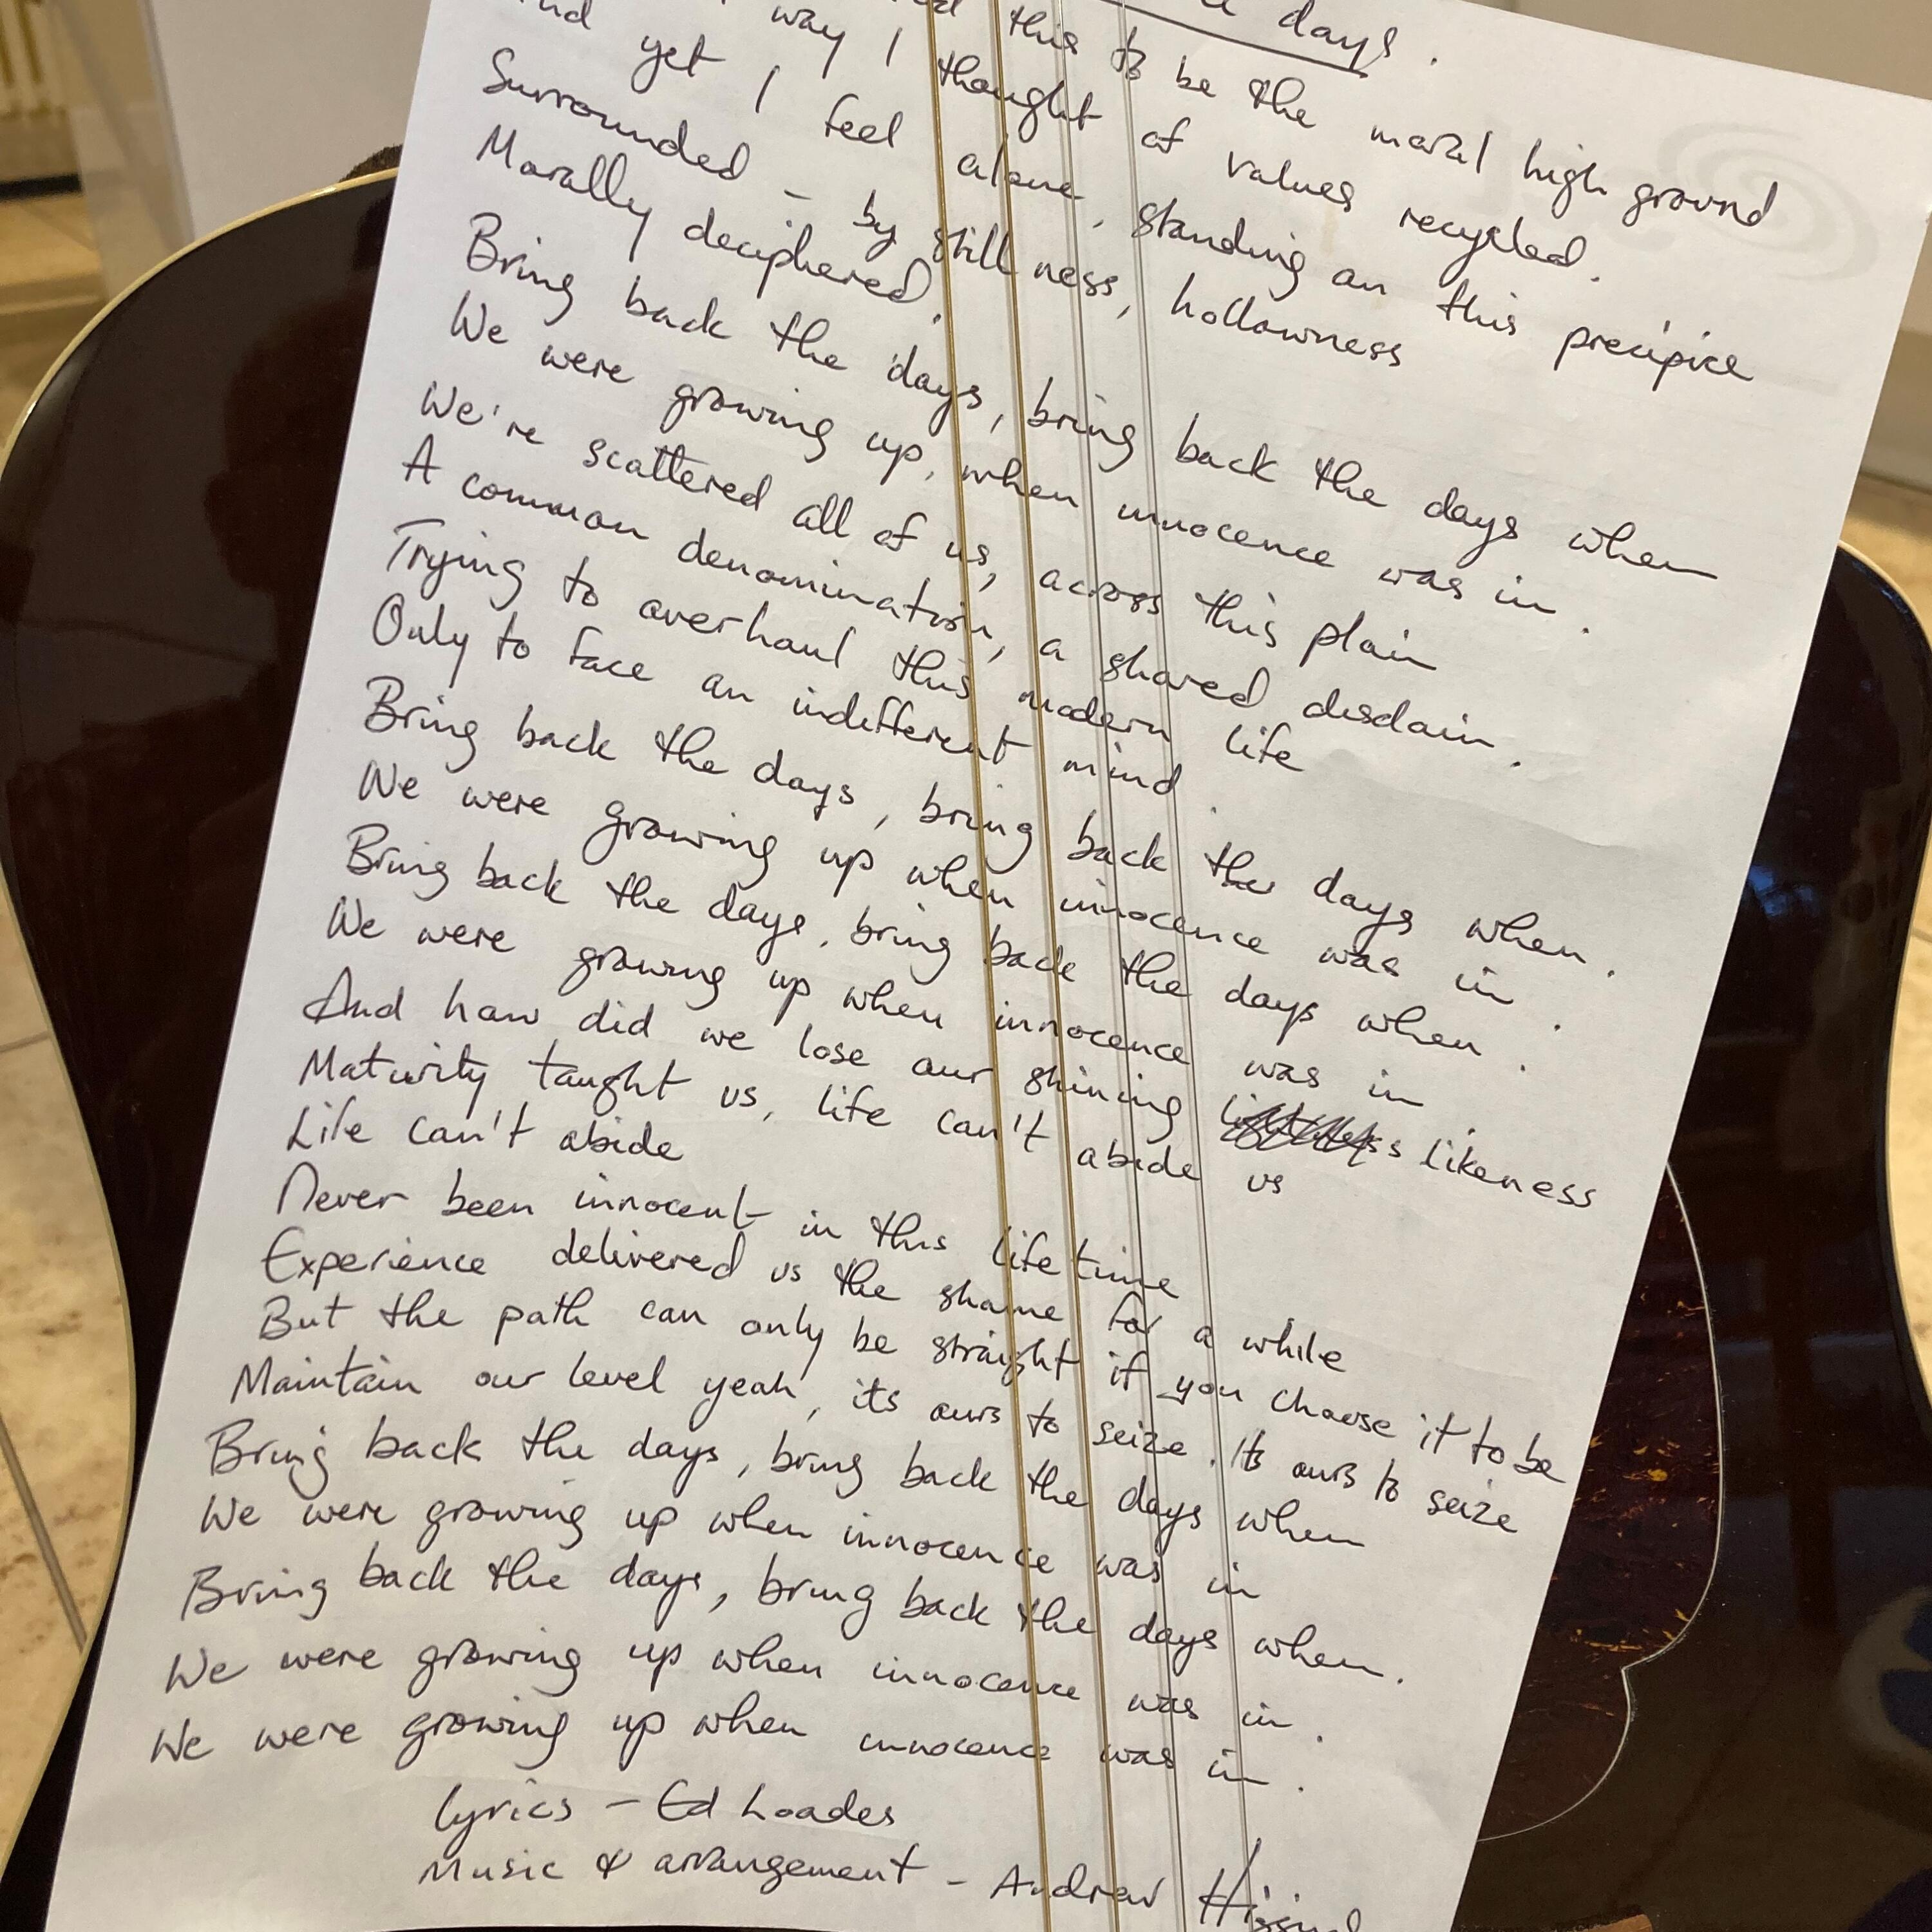 days.
this to be the moral high ground
way I thought of values recycled.
And yet I feel alone, standing on this precipice
Surrounded - by stillness, hollowness
Morally deciphered.
Bring back the days, bring back the days when
We were growing up, when innocence was in.
We're scattered all of us, across this plain
A common denomination, a shared disdain.
Trying to overhaul this modern life
Only to face an indifferent mind.
Bring back the days, bring back the days when.
We were growing up when innocence was in.
Bring back the days, bring back the days when.
We were growing up when innocence was in.
And how did we lose our shining likeness
Maturity taught us, life can't abide us
Life can't abide
Never been innocent in this lifetime
Experience delivered us the shame for a while
But the path can only be straight if you choose it to be
Maintain our level yeah, its ours to seize. Its ours to seize
Bring back the days, bring back the days when
We were growing up when innocence was in
Bring back the days, bring back the days when.
We were growing up when innocence was in.
We were growing up when innocence was in.
Lyrics - Ed Loades
Music & arrangement - Andrew